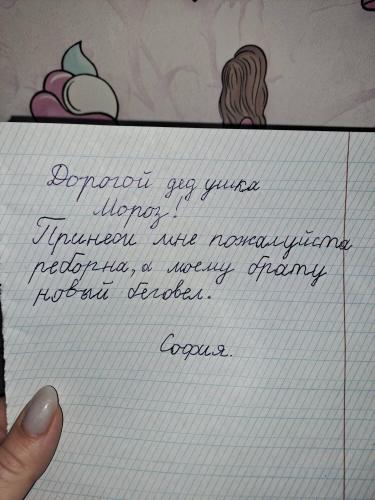 Дорогой дедушка
Мороз!
Принеси мне пожалуйста
реборна, а моему брату
новый беговел.
София.